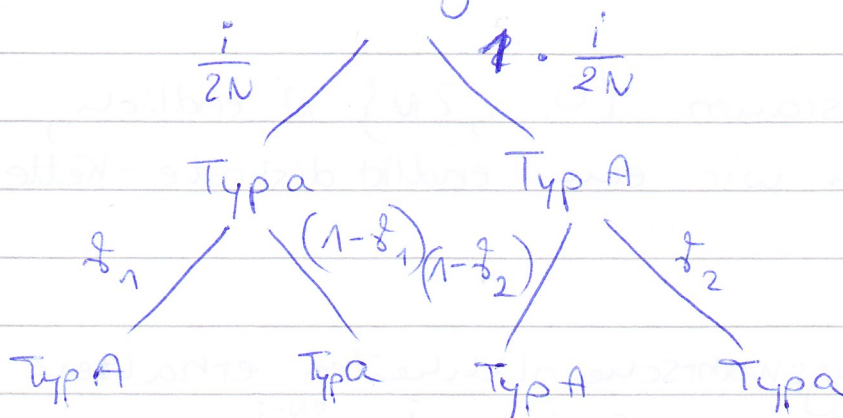 i/2N 1 · i/2N
Typ a Typ A
γ₁ (1-γ₁) (1-γ₂) γ₂
Typ A Typ a Typ A Typ a